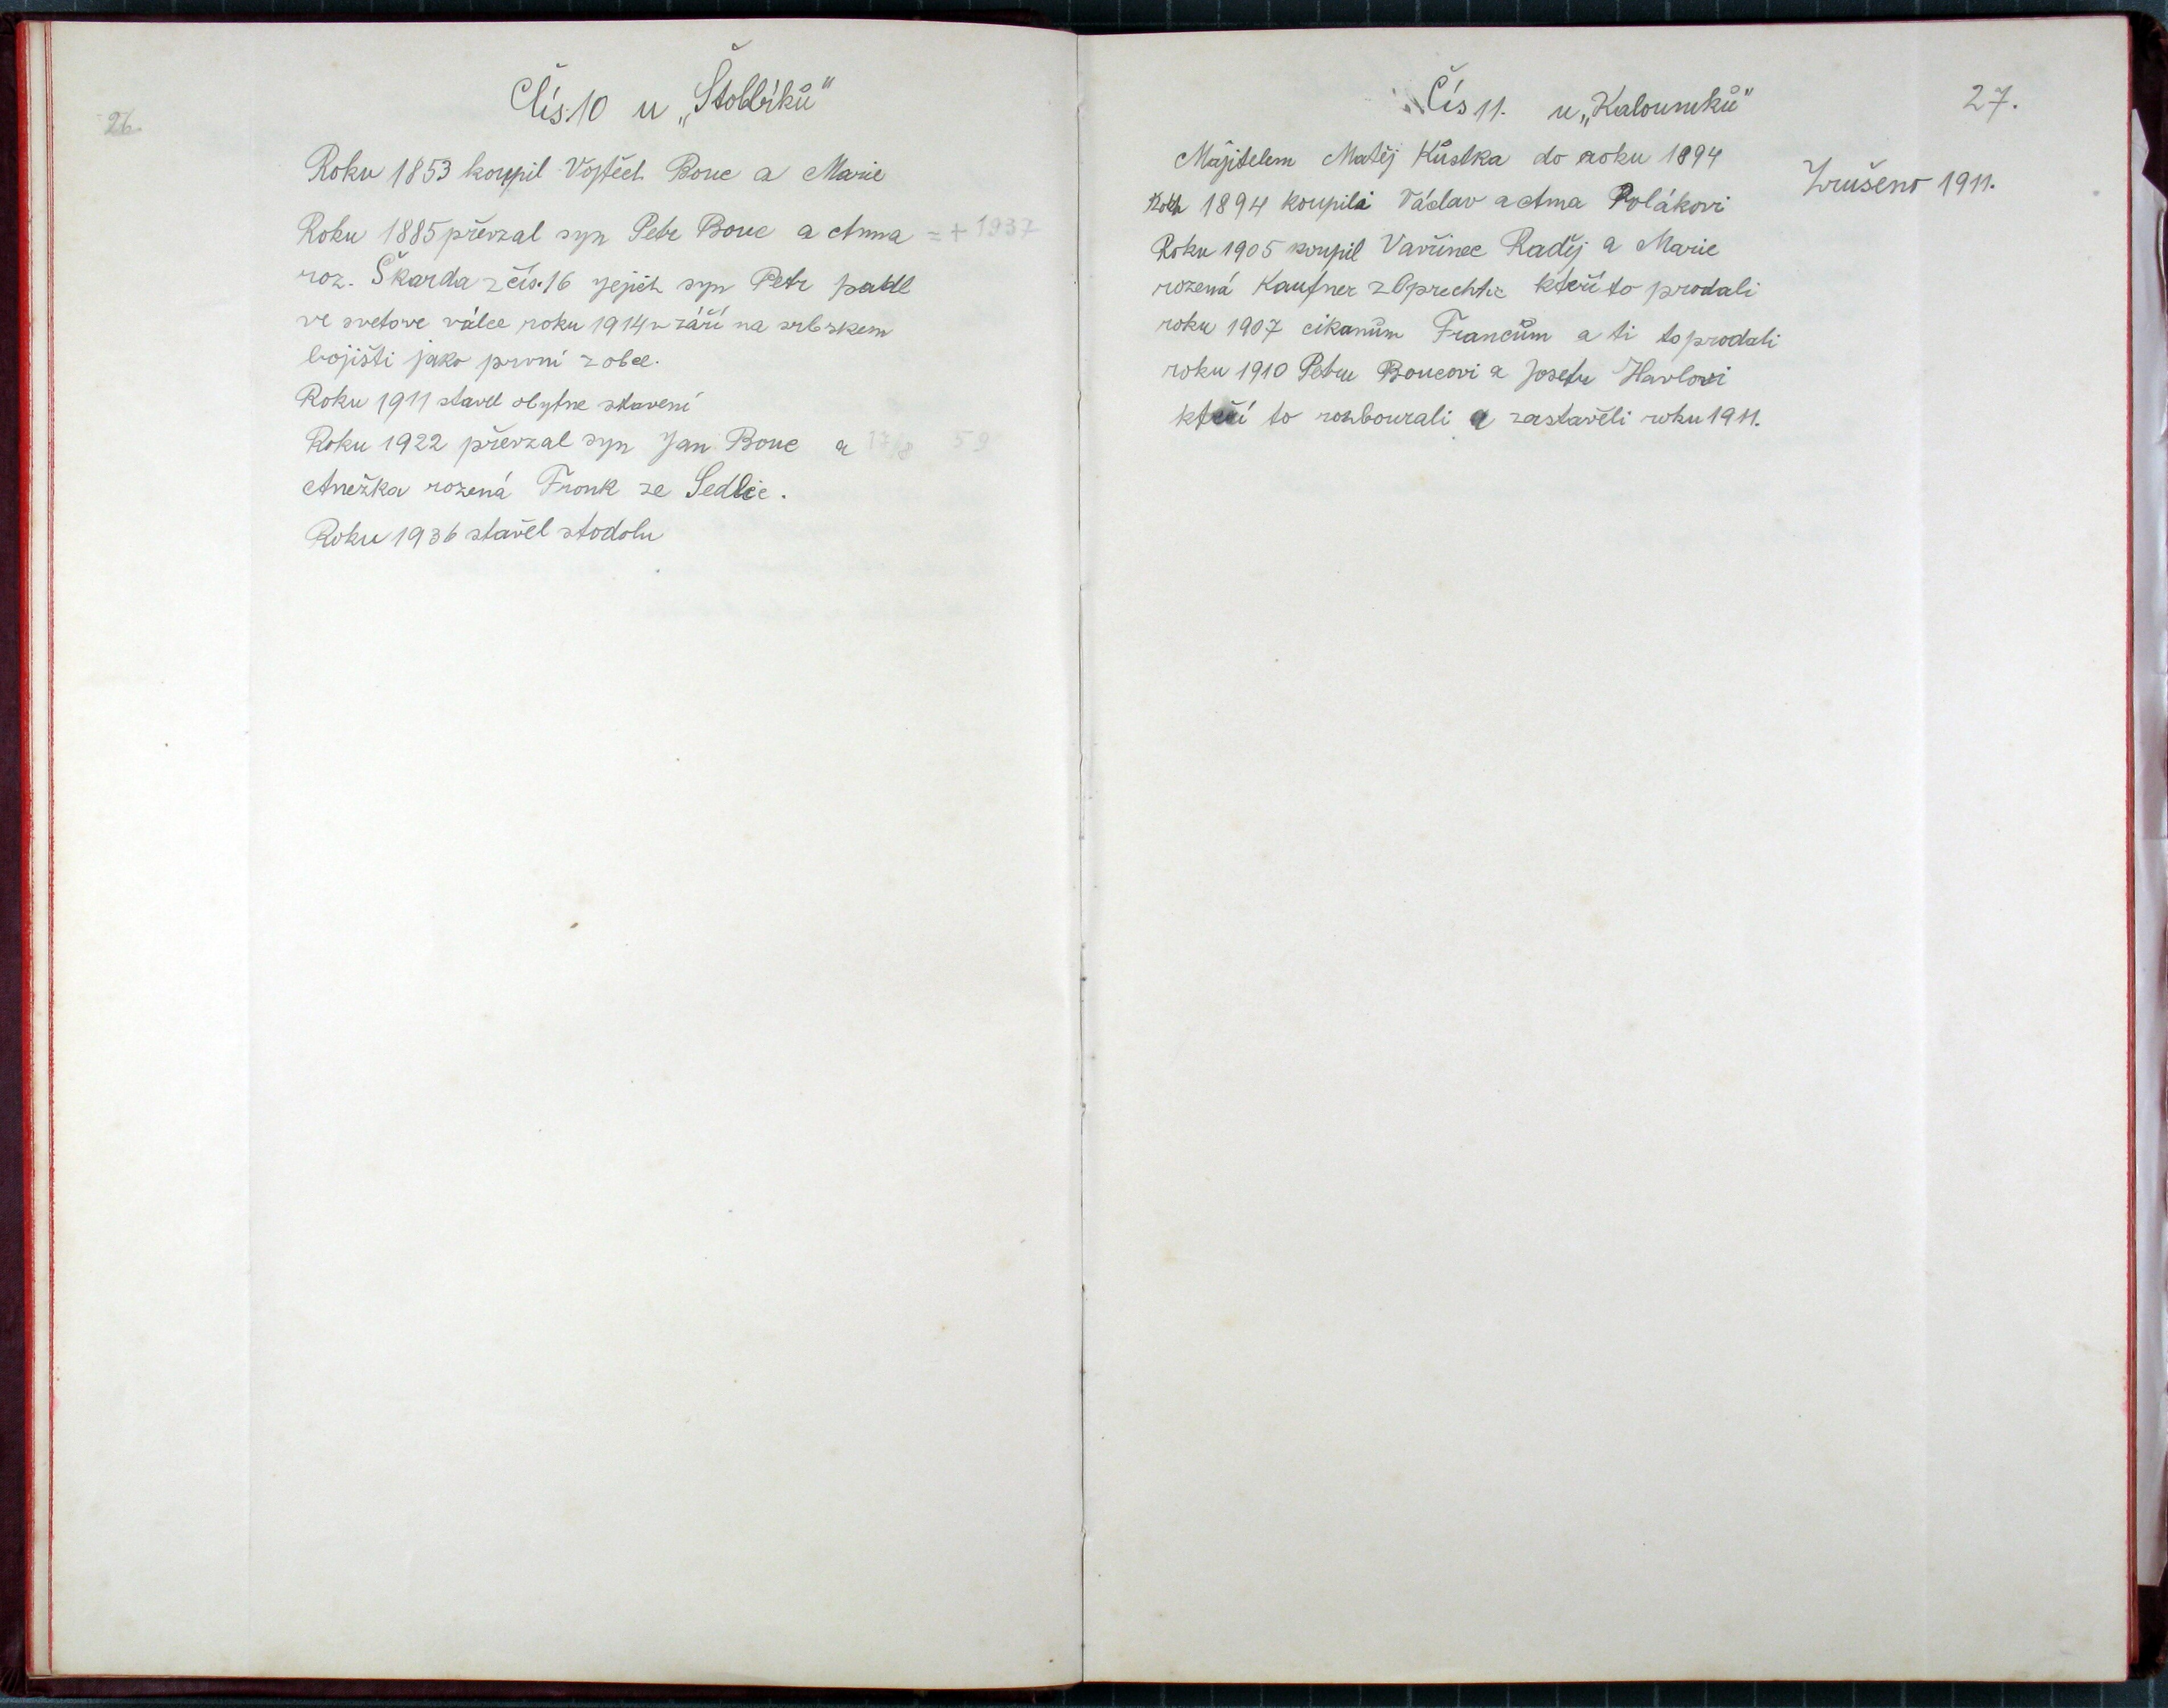 26.
Čís. 10 u „Štoblíků"
Roku 1853 koupil Vojtěch Bouc a Marie
Roku 1885 převzal syn Petr Bouc a Anna = + 1937
roz. Škarda z čís. 16 jejich syn Petr padl
ve svetove válce roku 1914 v září na srbskem
bojišti jako první z obce.
Roku 1911 stavěl obytne stavení
Roku 1922 převzal syn Jan Bouc a 17/8 59
Anežka rozená Fronk ze Sedlic.
Roku 1936 stavěl stodolu
27.
Čís 11. u „Kalounků"
Májitelem Matěj Kůstka do roku 1894
Zrušeno 1911.
Roku 1894 koupili Václav a Ana Polákovi
Roku 1905 koupil Vavřinec Raděj a Marie
rozená Kaufner z kteří to prodali
roku 1907 cikanům Francům a ti to prodali
roku 1910 Petru Boucovi a Josefu Havlovi
kteří to rozbourali a zastavěli roku 1911.